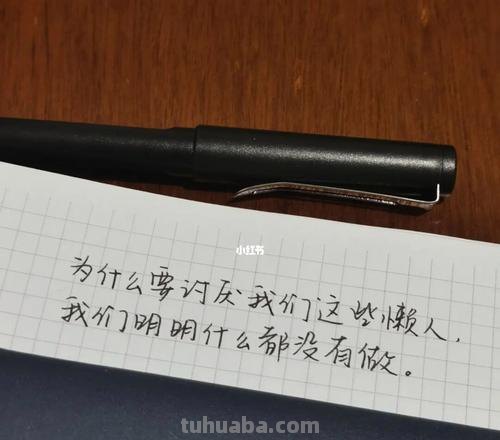 小红书
为什么要讨厌我们这些懒人，
我们明明什么都没有做。
tuhuaba.com